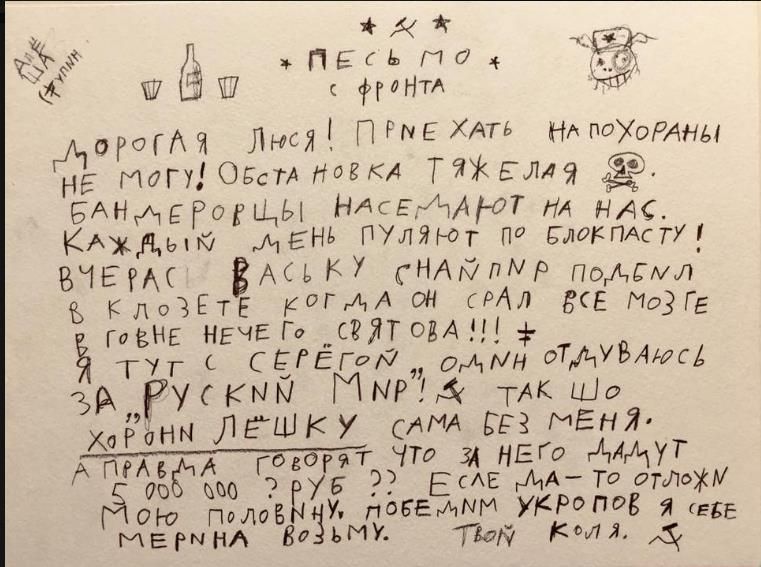 АЛЁ
ША
СТУПИН
ПЕСЬМО
С ФРОНТА
ДОРОГАЯ ЛЮСЯ! ПРИЕХАТЬ НА ПОХОРАНЫ
НЕ МОГУ! ОБСТАНОВКА ТЯЖЕЛАЯ .
БАНДЕРОВЦЫ НАСЕДАЮТ НА НАС.
КАЖДЫЙ ДЕНЬ ПУЛЯЮТ ПО БЛОКПАСТУ!
ВЧЕРАСЬ ВАСЬКУ СНАЙПИР ПОДБИЛ
В КЛОЗЕТЕ КОГДА ОН СРАЛ ВСЕ МОЗГЕ
В ГОВНЕ НЕЧЕГО СВЯТОВА!!!
Я ТУТ С СЕРЁГОЙ „ ОДИН ОТДУВАЮСЬ
ЗА „РУСКИЙ МИР"! ТАК ШО
ХОРОНИ ЛЁШКУ САМА БЕЗ МЕНЯ.
А ПРАВДА ГОВОРЯТ ЧТО ЗА НЕГО ДАДУТ
5 000 000 ? РУБ ?? ЕСЛЕ ДА – ТО ОТЛОЖИ
МОЮ ПОЛОВИНУ. ПОБЕДИМ УКРОПОВ Я СЕБЕ
МЕРИНА ВОЗЬМУ. ТВОЙ КОЛЯ.